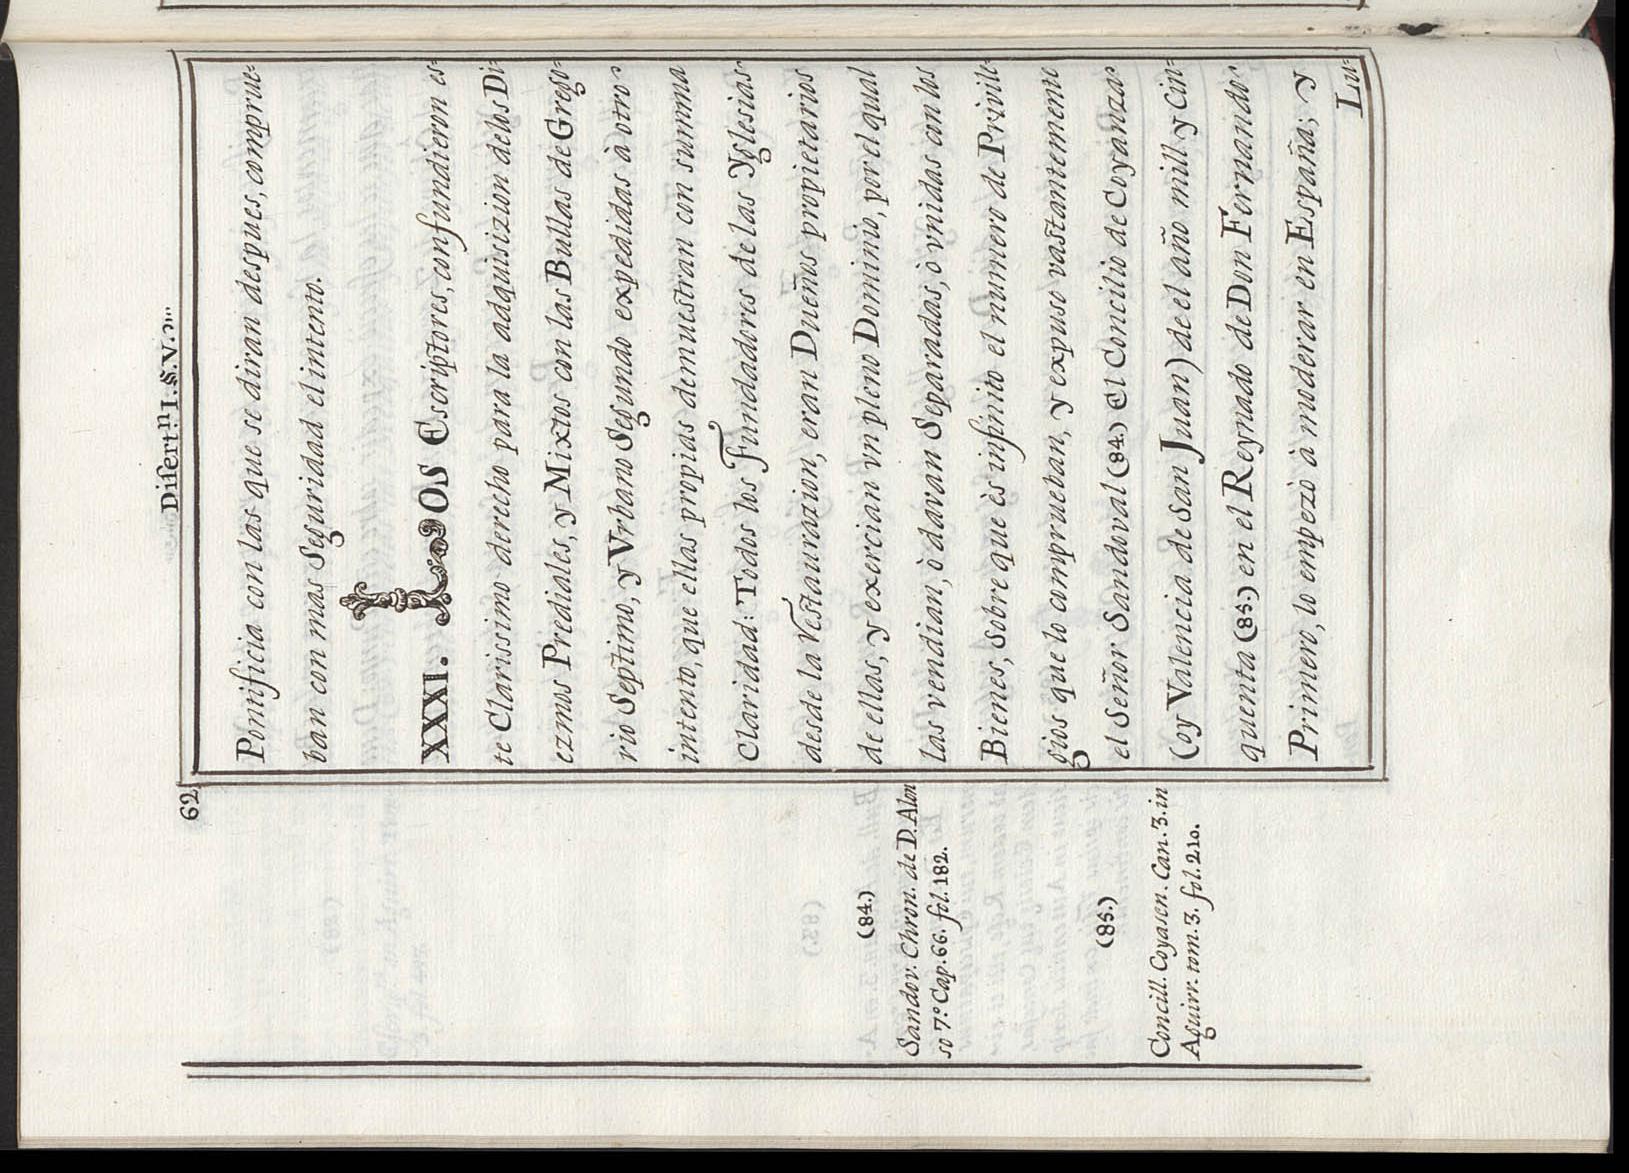 62
Disert.ⁿ I. §. V.
Pontificia con las que se diran despues, comprue-
van con mas Seguridad el intento.
XXXI. LOS Escriptores, confundieron es-
te Clarissimo derecho para la adquisizion de los Di-
ezmos Prediales, y Mixtos con las Bullas de Grego-
rio Septimo, y Vrbano Segundo expedidas à otro
intento, que ellas propias demuestran con summa
Claridad: Todos los Fundadores de las Yglesias
desde la Vestaurazion, eran Dueños propietarios
de ellas, y exercian vn pleno Dominio, por el qual
las vendian, ò davan Separadas, ò vnidas con los
Bienes, Sobre que ès infinito el numero de Privile-
gios que lo comprueban, y expuso vastantemente
el Señor Sandoval (84.) El Concilio de Coyanza
(oy Valencia de San Juan) de el año mill y Cin-
quenta (85.) en el Reynado de Don Fernando
Primero, lo empezò à moderar en España; y
Lui-
(84.)
Sandov. Chron. de D. Alon
so 7.º Cap. 66. fol. 182.
(85.)
Concill. Coyasen. Can. 3. in
Aguirr. tom. 3. fol. 210.